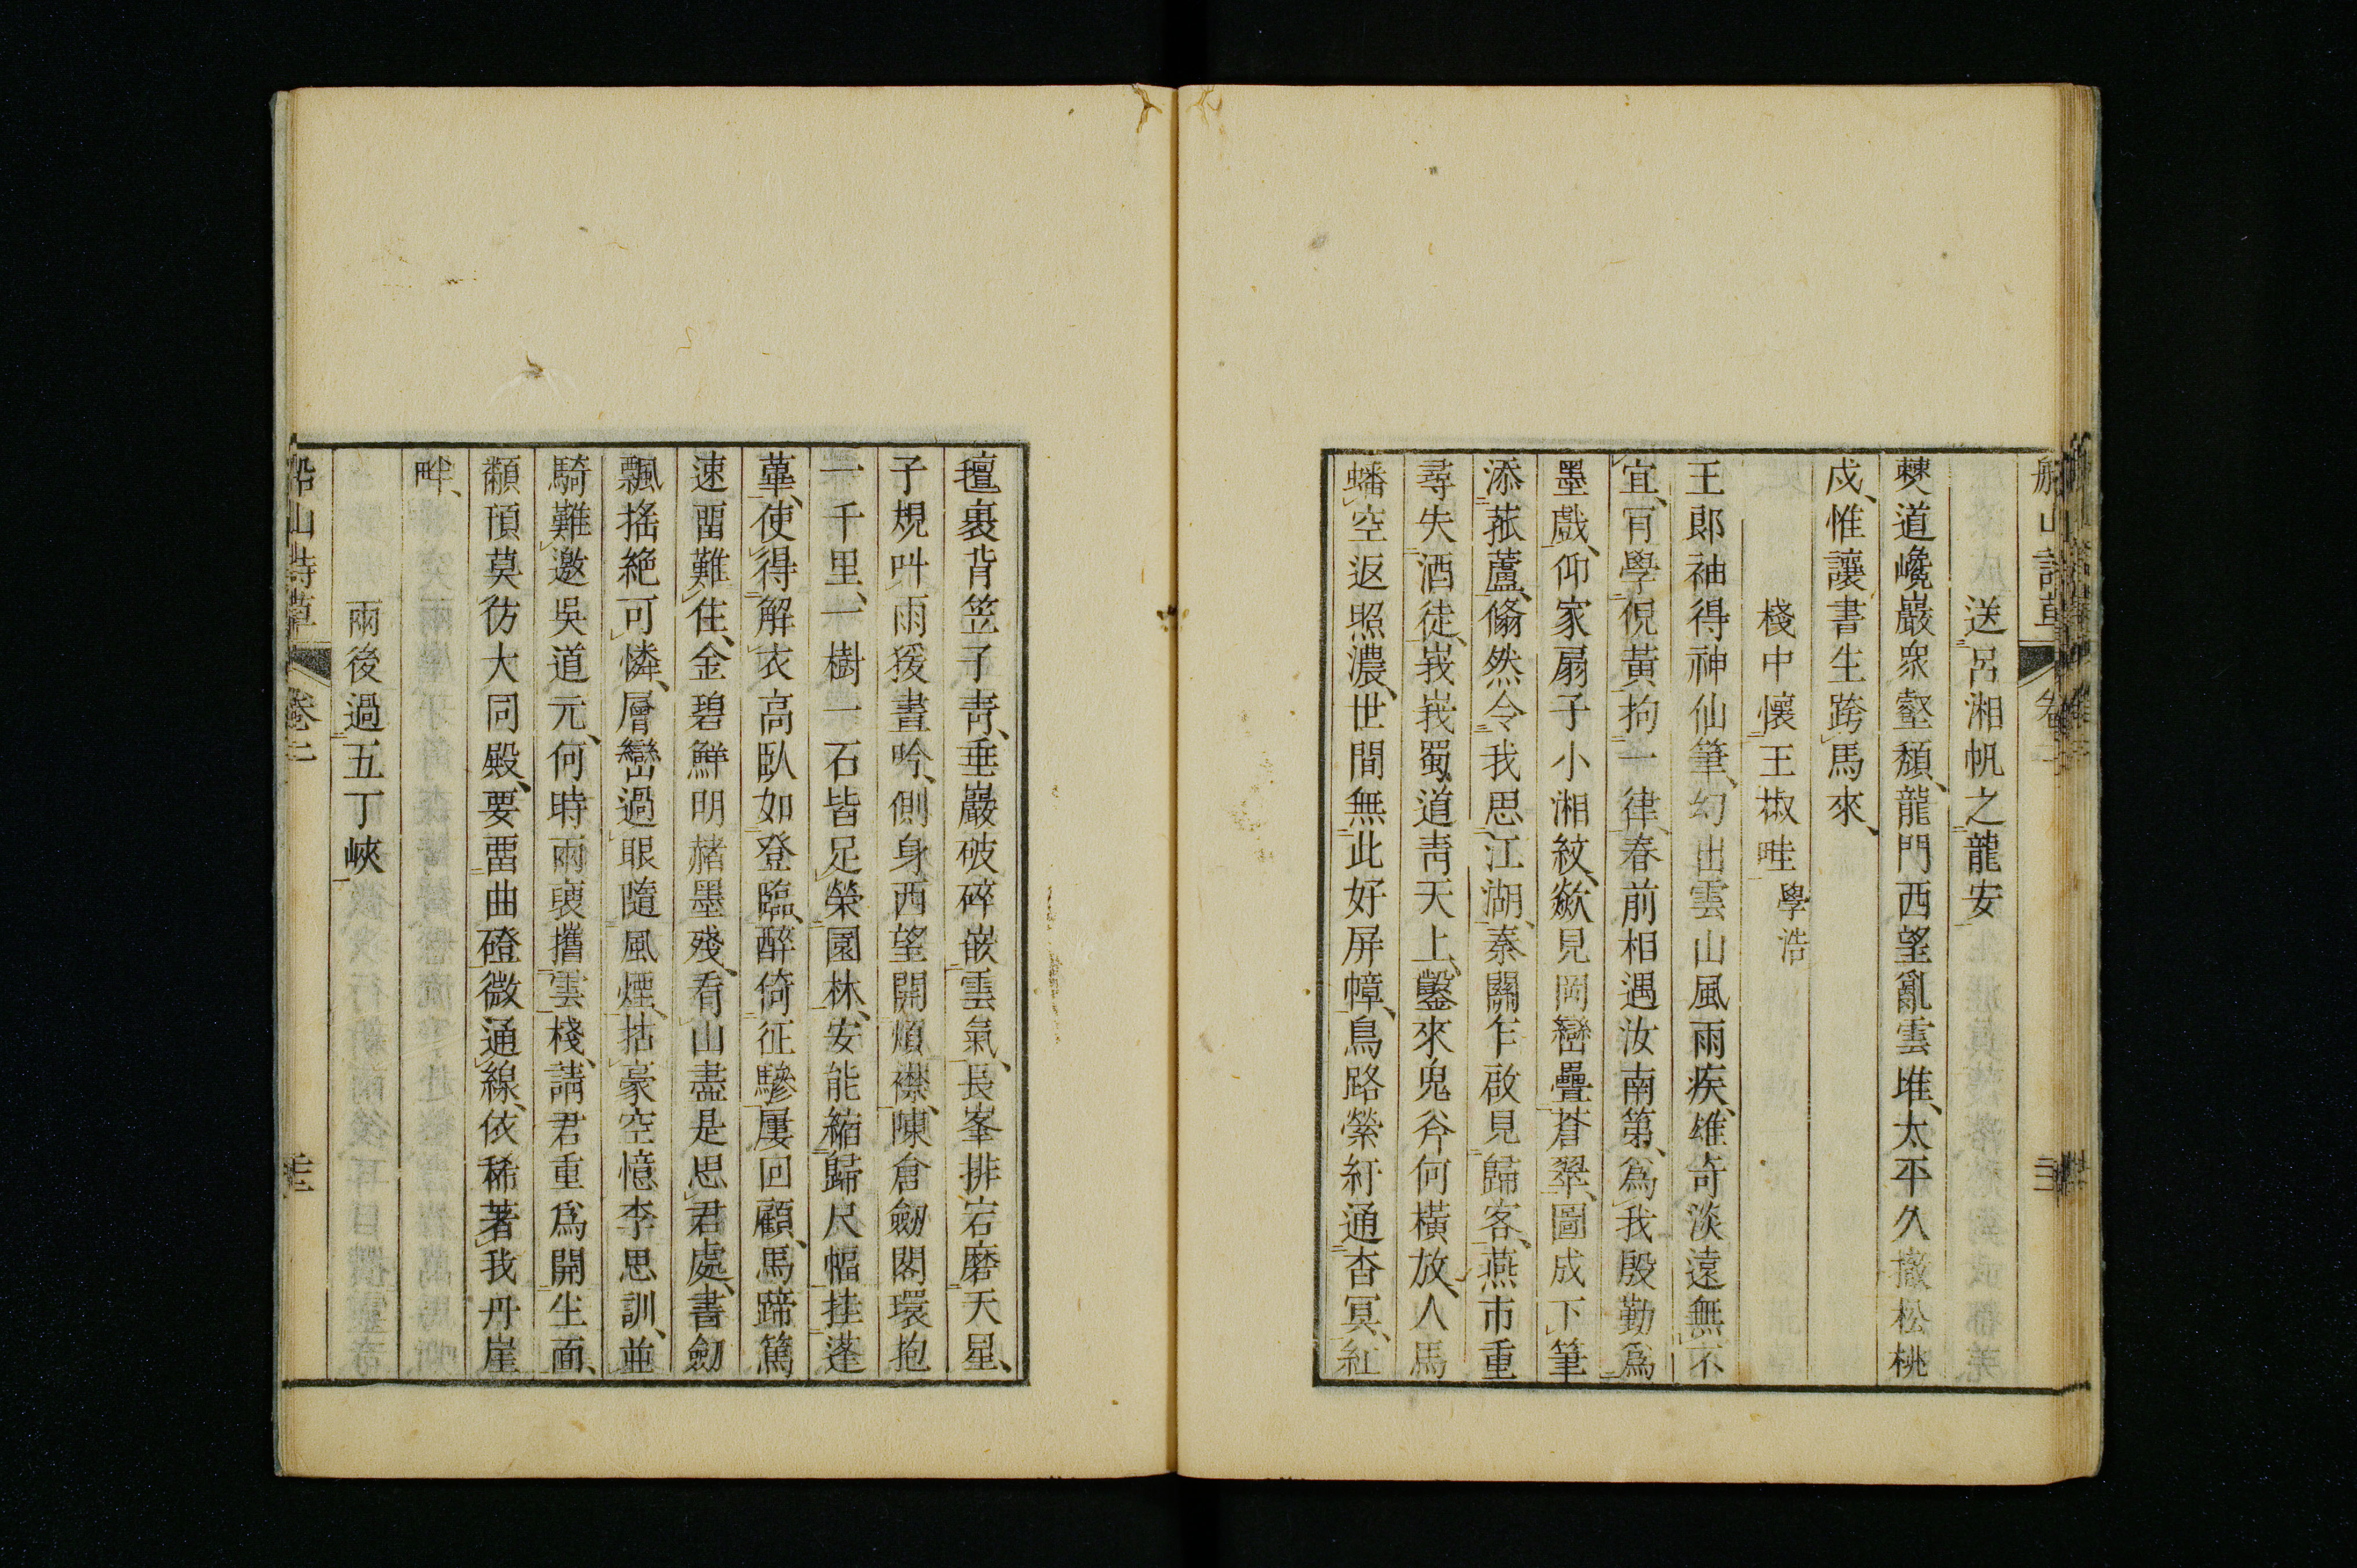 送呂湘帆之龍安
僰道巉巖衆壑頽、龍門西望亂雲堆、太平久撤松桃
戍、惟讓書生跨馬來、
棧中懷王椒畦 學浩
王郎袖得神仙筆、幻出雲山風雨疾、雄奇淡遠無不
宜、肎學倪黃拘一律、春前相遇汝南第、爲我殷勤爲
墨戲、仰家扇子小湘紋、歘見岡巒疊蒼翠、圖成下筆
添菰蘆、翛然令我思江湖、秦關乍啟見歸客、燕市重
尋失酒徒、峩峩蜀道靑天上、鑿來鬼斧何橫放、人馬
蟠空返照濃、世間無此好屏幛、鳥路縈紆通杳冥、紅
氊裹背笠子靑、垂巖破碎嵌雲氣、長峯排宕磨天星、
子規叫雨猨晝吟、側身西望開煩襟、陳倉劒閣環抱
一千里、一樹一石皆足榮園林、安能縮歸尺幅挂蓬
蓽、使得解衣高臥如登臨、醉倚征驂屢回顧、馬蹄篤
速畱難住、金碧鮮明赭墨殘、看山盡是思君處、書劒
飄搖絕可憐、層巒過眼隨風煙、拈豪空憶李思訓、並
騎難邀吳道元、何時兩褏攜雲棧、請君重爲開生面、
顢頇莫彷大同殿、要畱曲磴微通線、依稀著我丹崖
畔、
雨後過五丁峽
船山詩草 卷二